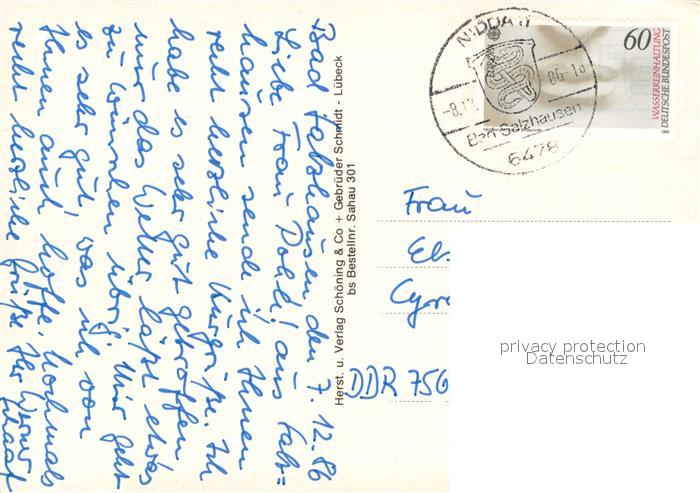 Bad Salzhausen, den 7.12.86
Liebe Frau Pohl! Aus Salz=
hausen sende ich Ihnen
recht herzliche Kurgrüße. Ich
habe es sehr gut getroffen
nur das Wetter läßt etwas
zu wünschen übrig. Mir geht
es sehr gut, was ich von
Ihnen auch hoffe. Nochmals
recht herzliche Grüße Ihr Werner
Schaaf
Herst. u. Verlag Schöning & Co + Gebrüder Schmidt - Lübeck
bs Bestellnr. Sahau 301
NIDDA 11
-8.12. 86-10
Bad Salzhausen
6478
60
WASSERREINHALTUNG
DEUTSCHE BUNDESPOST
Frau
DDR 756
privacy protection
Datenschutz